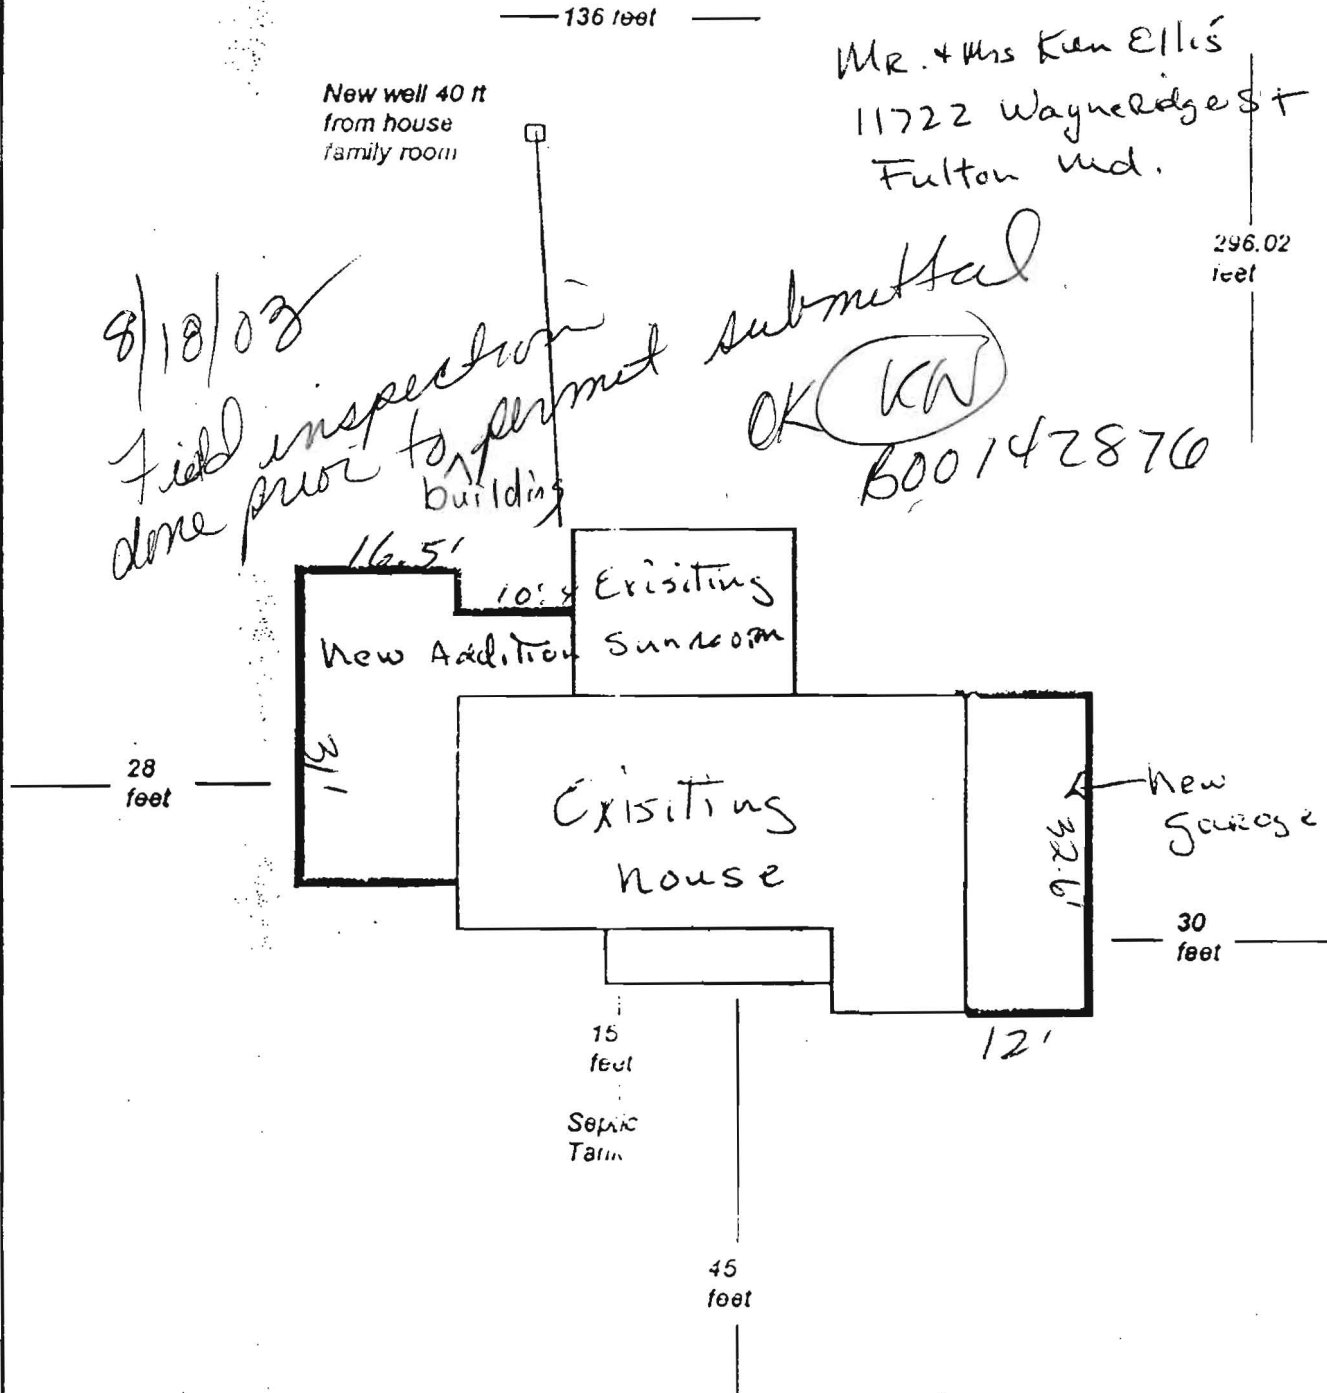 136 feet
Mr. + Mrs Ken Ellis
11722 WayneRidge St
Fulton Md.
New well 40 ft
from house
family room
296.02
feet
8/18/03
Field inspection
done prior to ^ permit submittal
building
OK KN
B00142876
16.5'
10'
Exisiting
Sunroom
New Addition
31'
28
feet
Exisiting
house
New
Garage
32.6'
30
feet
12'
15
feet
Septic
Tank
45
feet